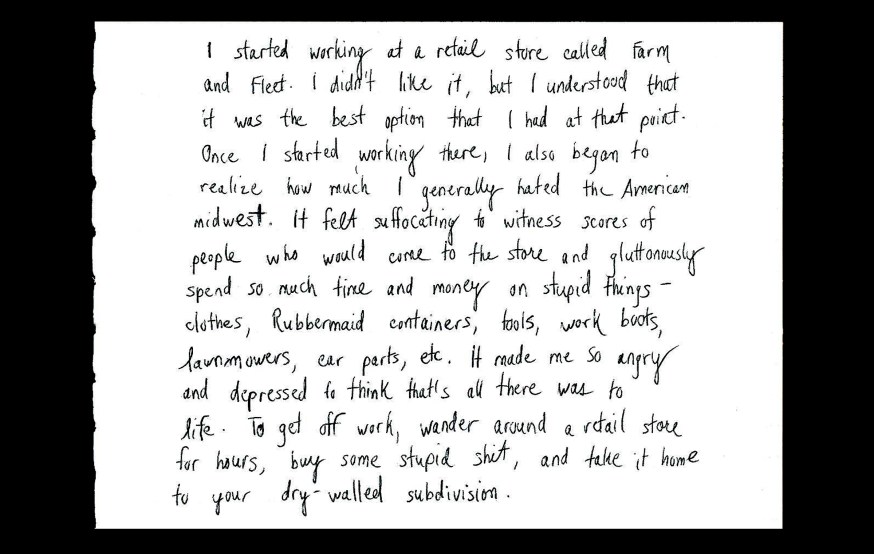 I started working at a retail store called Farm
and Fleet. I didn't like it, but I understood that
it was the best option that I had at that point.
Once I started working there, I also began to
realize how much I generally hated the American
midwest. It felt suffocating to witness scores of
people who would come to the store and gluttonously
spend so much time and money on stupid things –
clothes, Rubbermaid containers, tools, work boots,
lawnmowers, car parts, etc. It made me so angry
and depressed to think that's all there was to
life. To get off work, wander around a retail store
for hours, buy some stupid shit, and take it home
to your dry-walled subdivision.